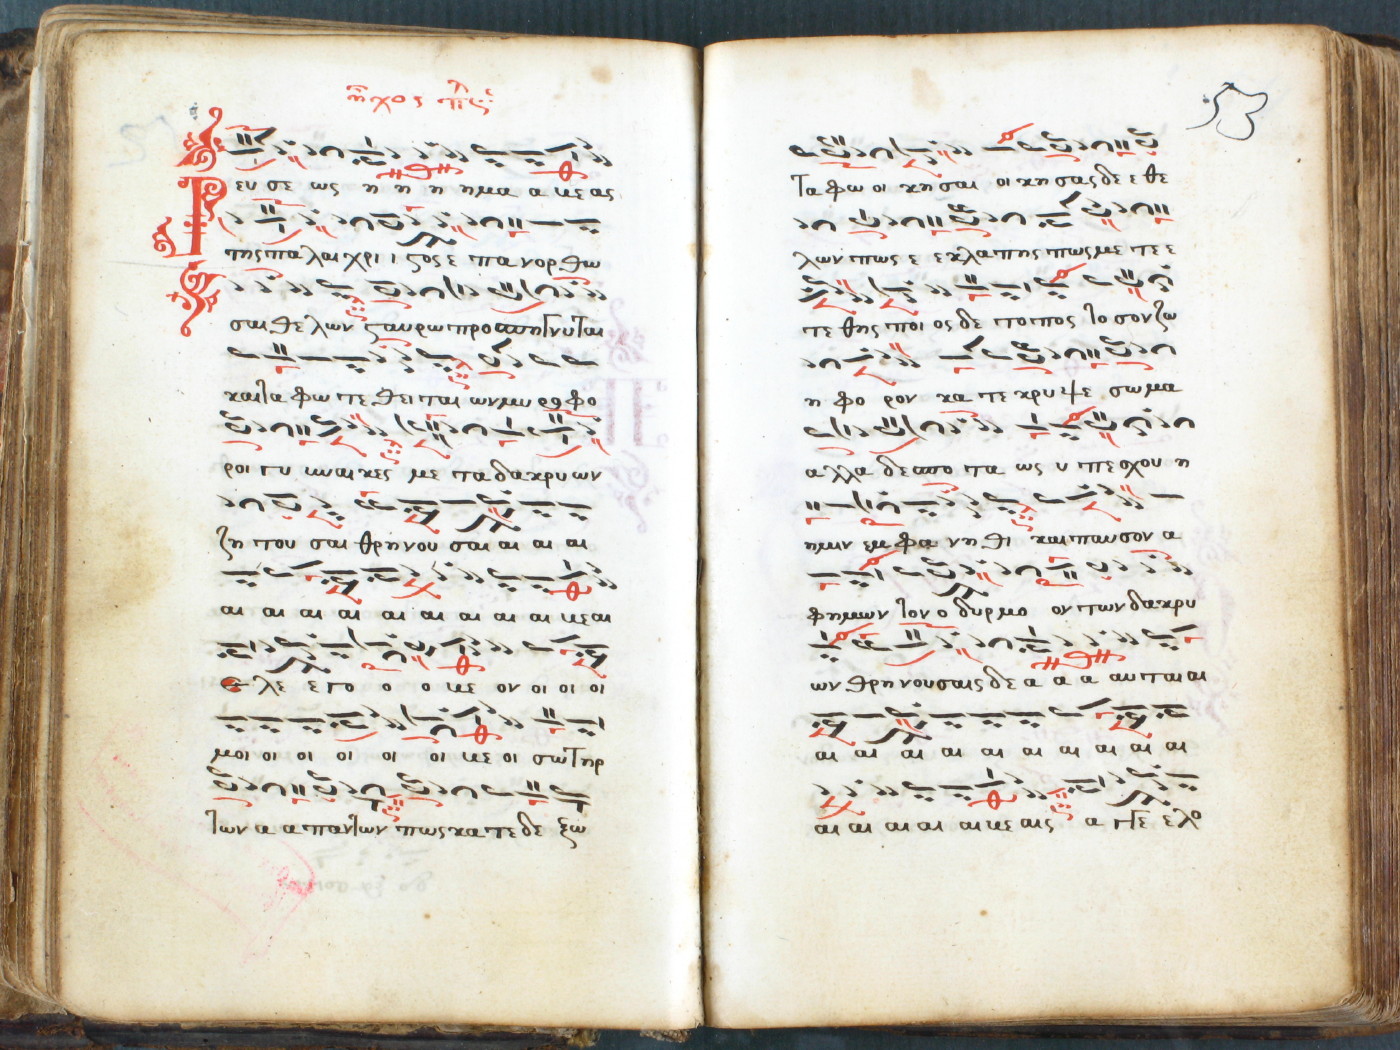 ἦχος πλ
Γευ σε ως η η η ημα α με ας
της πα λαι χρι ι ϛος ε πα νορ θω
σαι θε λων ϛαυ ρω προ ση γνυ ται
και τα φω τε θει ται ων μυ ρο φο
ροι γυ ναι κες με τα δα κρυ ων
ζη του σαι θρη νου σαι αι αι αι
αι αι αι αι αι αι αι αι αι με αι
ε λε ε γο ο ο με ον οι οι οι
μοι οι οι οι οι οι με οι σω τηρ
των α α παν των πως κα τε δε ξω
53
τα φω οι κη σαι οι κη σας δε ε θε
λων πως ε ε κλα πης πως με τε ε
τε θης ποι ος δε το πος το σον ζω
η φο ρον κα τε κρυ ψε σω μα
α λλα δε σπο τα ως υ πε σχου η
ημιν εμ φα νη θι και παυ σον α
φ ημων τον ο δυρ μο ον των δα κρυ
ων θρη νου σαις δε α α α αυ ται αι
αι αι αι αι αι αι αι αι αι αι
αι αι αι αι αι με αις α γγε ελο